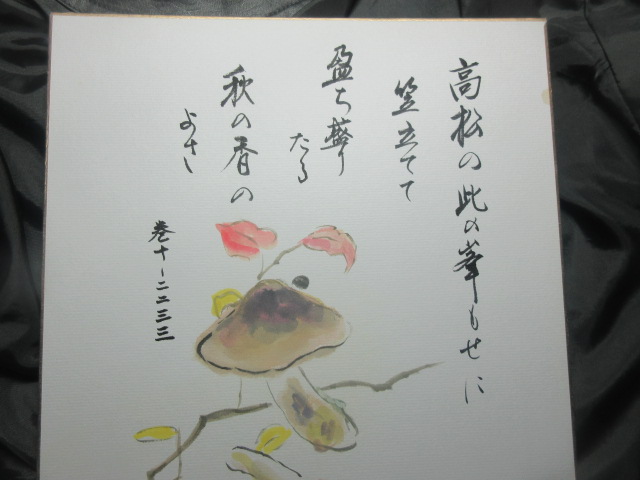 高松の此の峯もせに
笠立てて
盈ち盛り
たる
秋の香の
よさ
巻十-二二三三